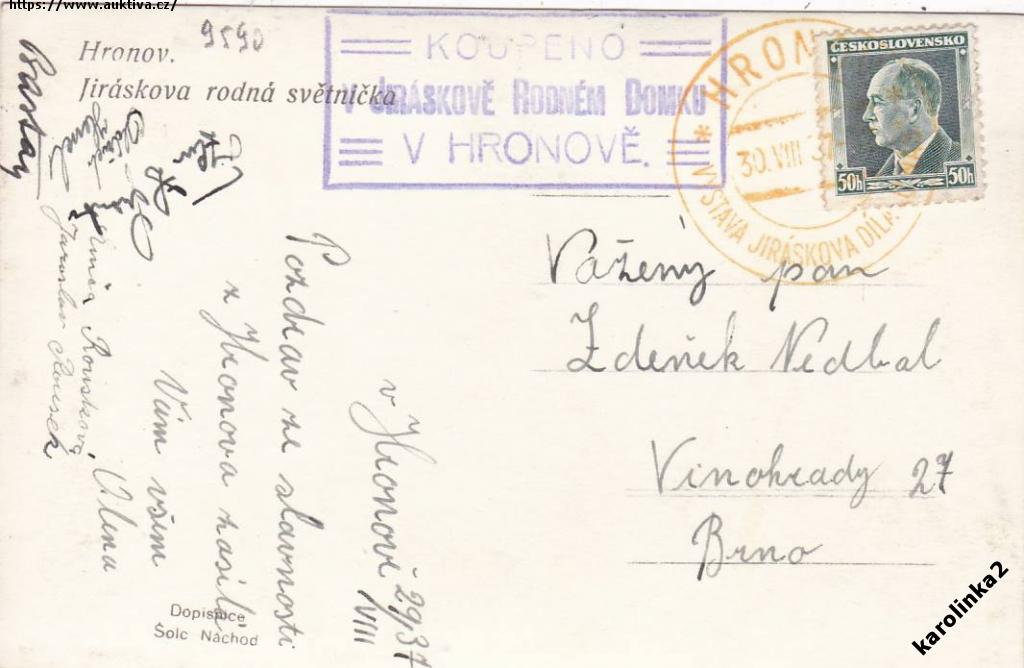 https://www.auktiva.cz/
Hronov.
Jiráskova rodná světnička
9590
KOUPENO
V JIRÁSKOVĚ RODNÉM DOMKU
V HRONOVĚ.
HRONOV
30.VIII 37
* VÝSTAVA JIRÁSKOVA DÍLA
ČESKOSLOVENSKO
50h 50h
Vážený pan
Zdeněk Nedbal
Vinohrady 27
Brno
v Hronově 29/VIII 37
Pozdrav ze slavnosti
z Hronova zasílá
Vám všem
Olena
Roušková
Jaroslav Rousek
Dopisnice
Šolc Náchod
karolinka2